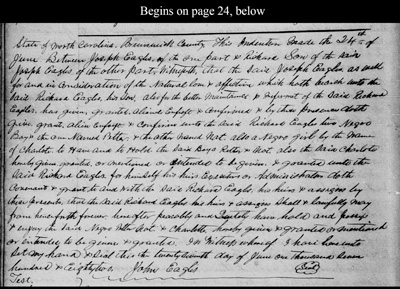 Begins on page 24, below
State of North Carolina, Brunswick County. This Indenture Made the 24th of
June Between Joseph Eagles, of the one part & Richard Son of the said
Joseph Eagles, of the other part, Witnesseth, that the said Joseph Eagles as well
for and in Consideration of the Natural love & affection which he hath beareth unto the
said Richard Eagles his Son, also for the better Maintainance & Preferment of the said Richard
Eagles. has given, granted, Aliened Enfeoft & Confirmed & by these presents doth
give, grant, Alien Enfeoft & Confirm unto the said Richard Eagles two Negro
Boys the one Named Ritter, & the other Named Nat also a Negro girl by the Name
of Charlotte to Have and to Hold the said Boys Ritter & Nat also the said Charlotte
hereby given granted, or mentioned or intended to be given & granted unto the
said Richard Eagles for himself his heirs Executors or Administrators doth
Covenant & grant to and with the said Richard Eagles, his heirs & assigns by
these presents, that the said Richard Eagles his heirs & assigns shall & lawfully may
from henceforth forever hereafter peaceably and Quietly have hold and possess
& enjoy the said Negros Ritter Nat & Charlotte, hereby given & granted or mentioned
or intended to be given & granted. In Witness whereof I have hereunto
set my hand & Seal this the twenty fourth day of June one thousand seven
hundred & Eighty two. John Eagles Seal
Test.